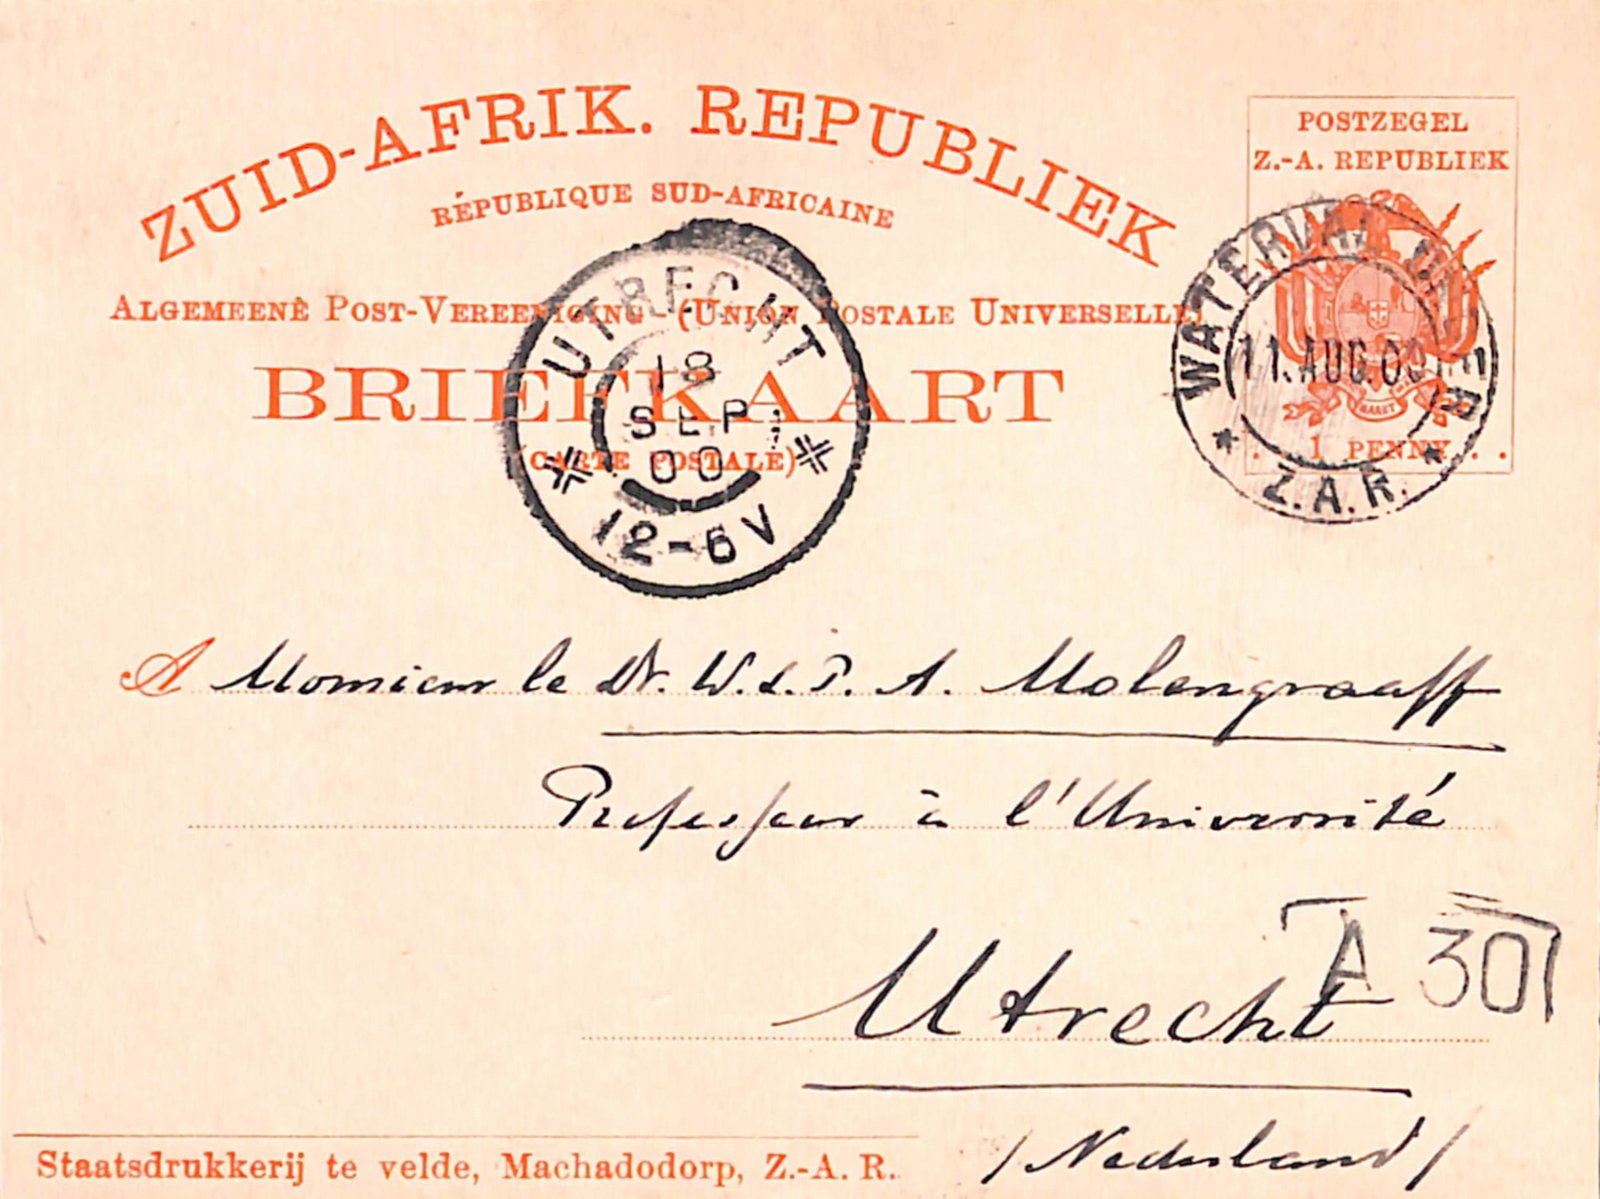 ZUID-AFRIK. REPUBLIEK
RÉPUBLIQUE SUD-AFRICAINE
ALGEMEENE POST-VEREENIGING - (UNION POSTALE UNIVERSELLE)
BRIEFKAART
(CARTE POSTALE)
POSTZEGEL
Z.-A. REPUBLIEK
MAAKT
1 PENNY
WATERVAL ONDER
11.AUG.00
Z.A.R.
UTRECHT
18
SEP
00
12-6V
A Monsieur le Dr. W. L. P. A. Molengraaff
Professeur à l'Université
A 30
Utrecht
/Nederland/
Staatsdrukkerij te velde, Machadodorp, Z.-A. R.